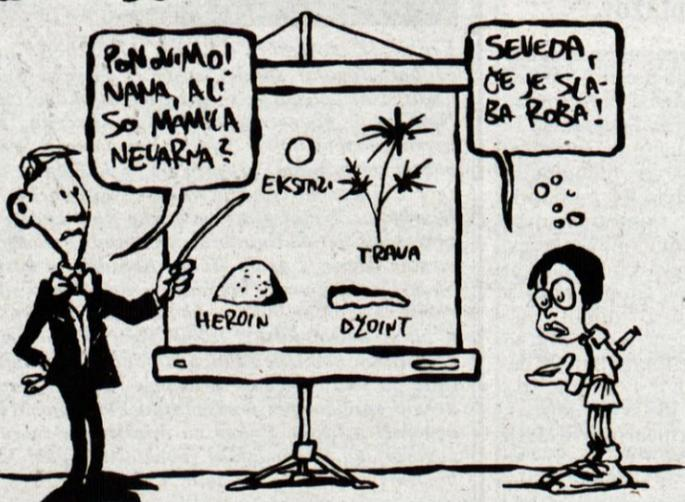 PONOVIMO!
NANA, ALI
SO MAMILA
NEVARNA?
SEVEDA,
ČE JE SLA-
BA ROBA!
EKSTAZI
TRAVA
HEROIN
DŽOINT